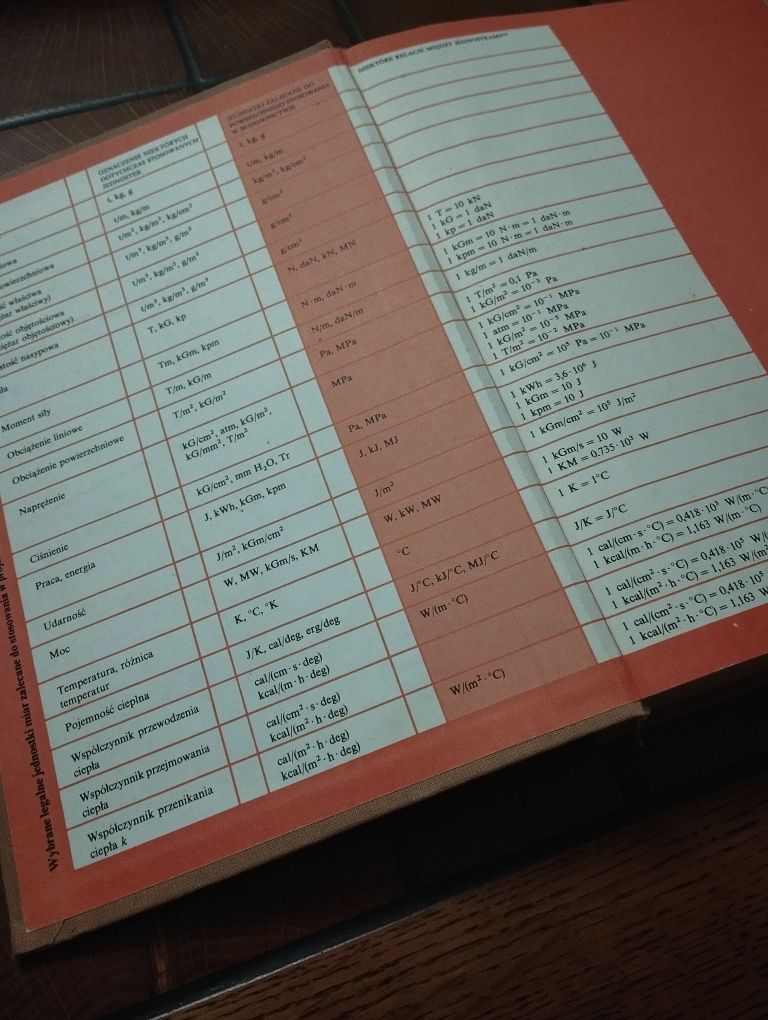 Wybrane legalne jednostki miar zalecane do stosowania w
OZNACZENIE NIEKTÓRYCH
DOTYCHCZAS STOSOWANYCH
JEDNOSTEK
t, kg, g
t/m, kg/m
t/m³, kg/m³, kg/cm³
t/m³, kg/m³, g/m³
t/m³, kg/m³, g/m³
t/m³, kg/m³, g/m³
T, kG, kp
Moment siły
Tm, kGm, kpm
Obciążenie liniowe
T/m, kG/m
Obciążenie powierzchniowe
T/m², kG/m²
Naprężenie
kG/cm², atm, kG/m²,
kG/mm², T/m²
Ciśnienie
kG/cm², mm H₂O, Tr
Praca, energia
J, kWh, kGm, kpm
Udarność
J/m², kGm/cm²
Moc
W, MW, kGm/s, KM
Temperatura, różnica
temperatur
K, °C, °K
Pojemność cieplna
J/K, cal/deg, erg/deg
Współczynnik przewodzenia
ciepła
cal/(cm·s·deg)
kcal/(m·h·deg)
Współczynnik przejmowania
ciepła
cal/(cm²·s·deg)
kcal/(m²·h·deg)
Współczynnik przenikania
ciepła k
cal/(m²·h·deg)
kcal/(m²·h·deg)
JEDNOSTKI ZALECANE DO
POWSZECHNEGO STOSOWANIA
W BUDOWNICTWIE
t, kg, g
t/m, kg/m
kg/m³, kg/cm³
g/cm³
g/cm³
g/cm³
N, daN, kN, MN
N·m, daN·m
N/m, daN/m
Pa, MPa
MPa
Pa, MPa
J, kJ, MJ
J/m²
W, kW, MW
°C
J/°C, kJ/°C, MJ/°C
W/(m·°C)
W/(m²·°C)
NIEKTÓRE RELACJE MIĘDZY JEDNOSTKAMI
1 T = 10 kN
1 kG = 1 daN
1 kp = 1 daN
1 kGm = 10 N·m = 1 daN·m
1 kpm = 10 N·m = 1 daN·m
1 kg/m = 1 daN/m
1 T/m² = 0,1 Pa
1 kG/m² = 10⁻⁵ Pa
1 kG/cm² = 10⁻¹ MPa
1 atm = 10⁻¹ MPa
1 kG/m² = 10⁻⁵ MPa
1 T/m² = 10⁻² MPa
1 kG/cm² = 10⁵ Pa = 10⁻¹ MPa
1 kWh = 3,6·10⁶ J
1 kGm = 10 J
1 kpm = 10 J
1 kGm/cm² = 10⁵ J/m²
1 kGm/s = 10 W
1 KM = 0,735·10³ W
1 K = 1°C
J/K = J/°C
1 cal/(cm·s·°C) = 0,418·10³ W/(m·°C)
1 kcal/(m·h·°C) = 1,163 W/(m·°C)
1 cal/(cm²·s·°C) = 0,418·10⁵
1 kcal/(m²·h·°C) = 1,163
1 cal/(cm²·s·°C) = 0,418·10⁵
1 kcal/(m²·h·°C) = 1,163